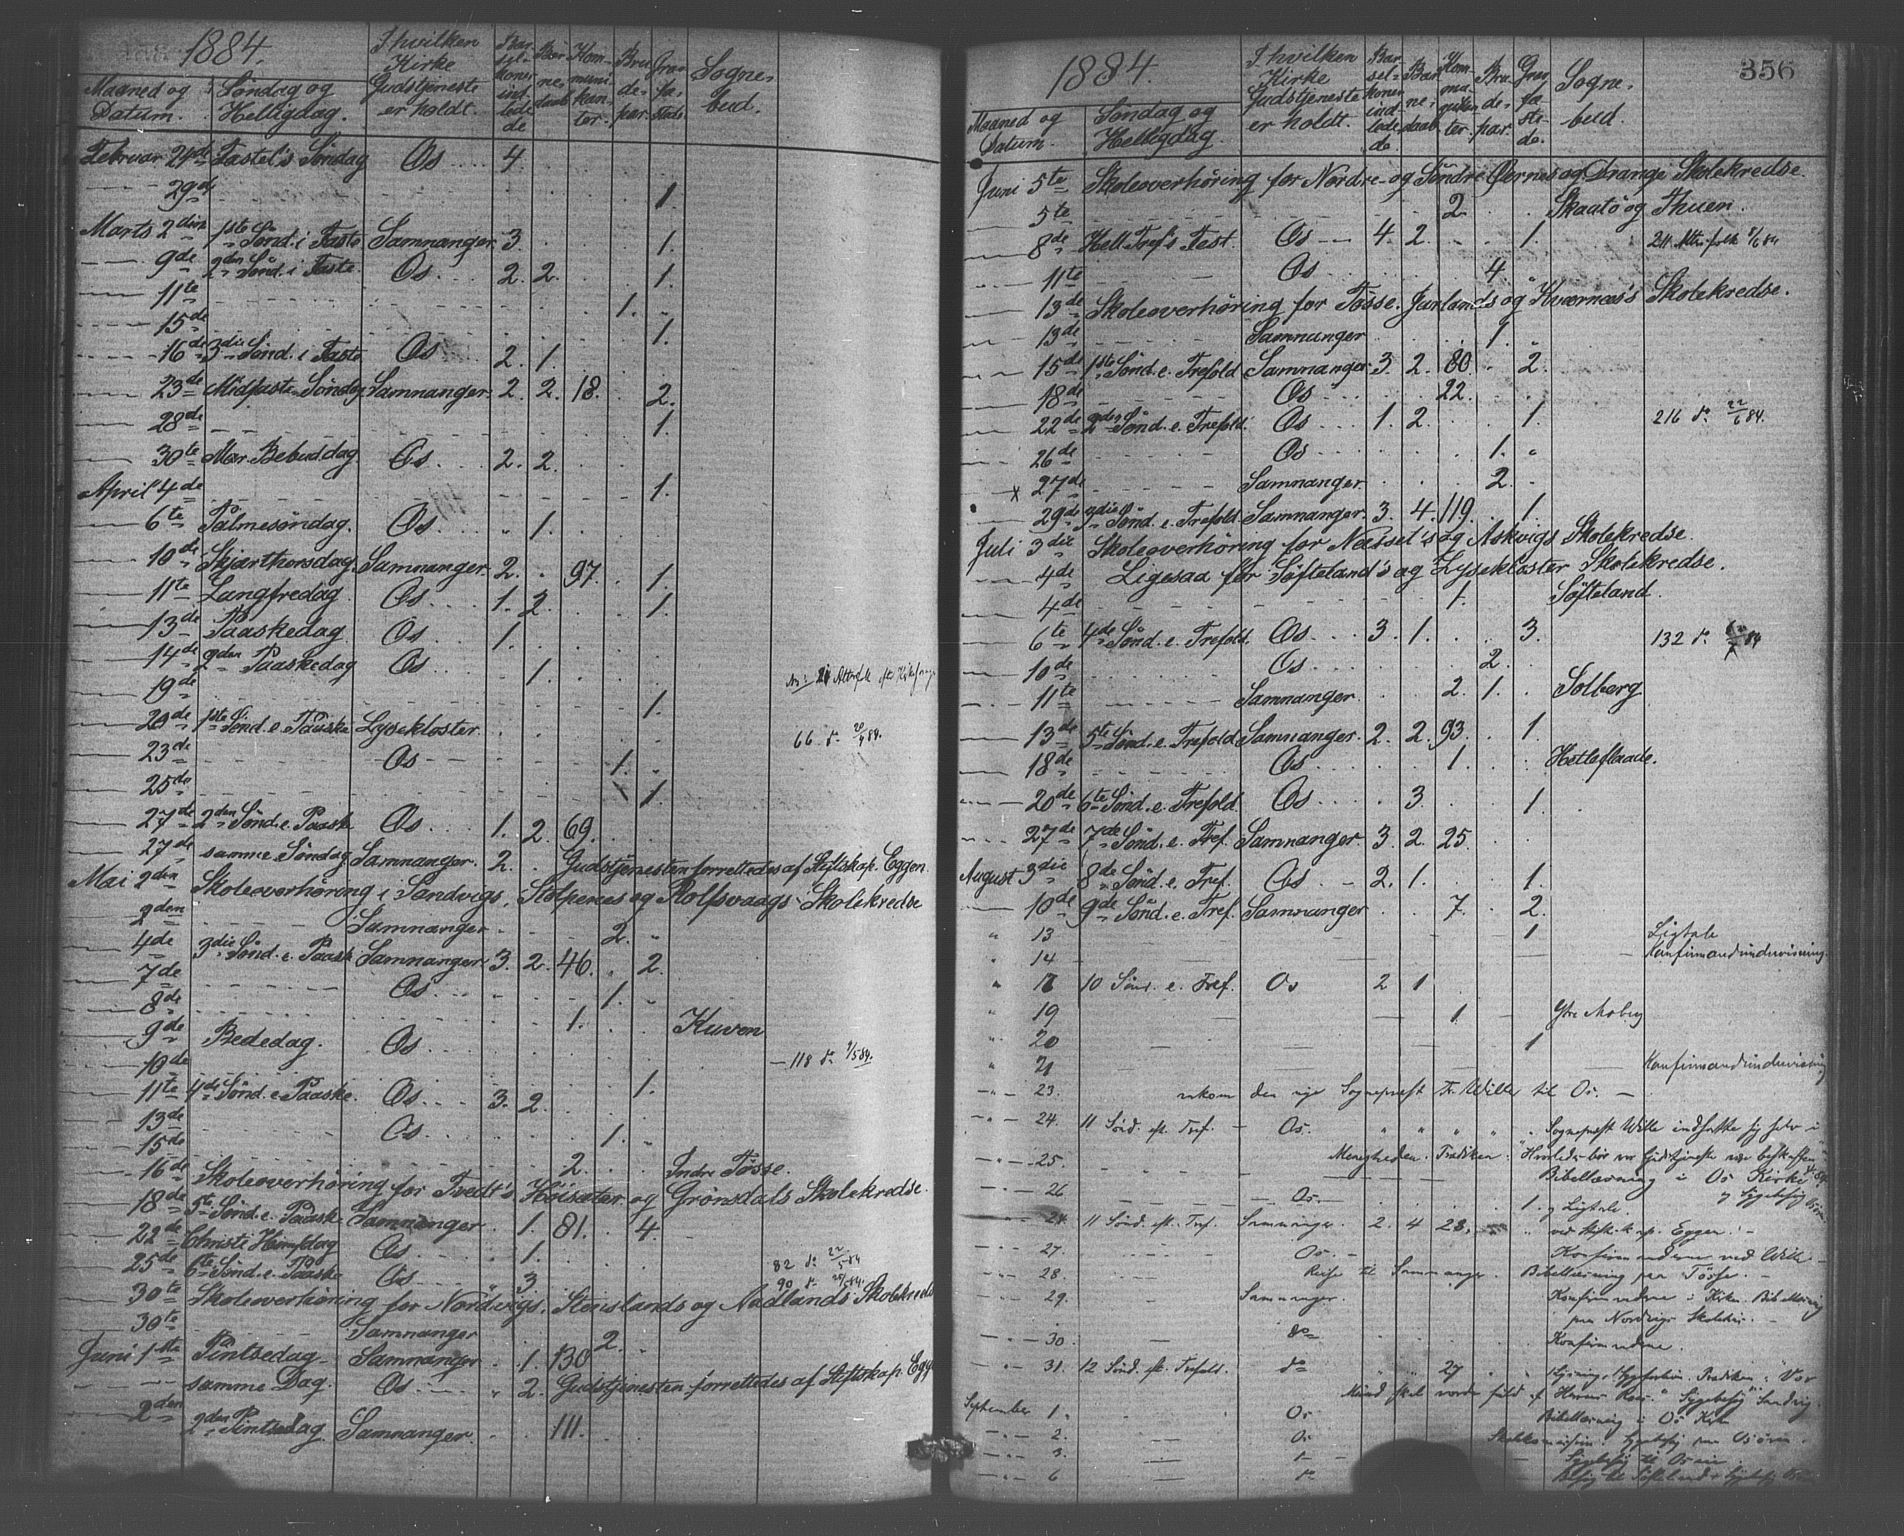 1884.
Maaned og Datum. Søndag og Helligdag. I hvilken Kirke Gudstjeneste er holdt. Barselkoner indledede Børnedaab Kommunikanter. Brudepar. Graffæstede Sognebud.
Februar 24de Fastel's Søndag Os 4.
29de 1.
Marts 2den 1ste Sønd. i Faste Samnanger 3. 1.
9de 2den Sønd. i Faste Os. 2. 2. 1.
11te 1.
15de 1.
16de 3die Sønd. i Faste Os 2. 1.
23de Midfaste Søndag Samnanger 2. 2. 18. 2.
28de 1.
30te Mar. Bebud.dag Os 2. 2.
April 4de 1.
6te Palmesøndag. Os 1.
10de Skjærthorsdag. Samnanger 2. 97. 1.
11te Langfredag Os 1. 2. 1.
13de Paaskedag Os 1.
14de 2den Paaskedag Os 1.
19de 1.
20de 1ste Sønd. e. Paaske Lysekloster 66 d. 20/4 84.
23de Os 1.
25de 1.
27de 2den Sønd. e. Paaske Os 1. 2. 69.
27de samme Søndag Samnanger. 2. Gudstjenesten forrettedes af Stiftskap. Eggen.
Mai 2den Skoleoverhøring i Sandvigs, Stolpenes og Rolfsvaags Skolekredse
2den Samnanger 2.
4de 3die Sønd. e. Paask Samnanger 3. 2. 46. 2.
7de Os 1.
8de 1. Kuven
9de Bededag. Os 118 d. 9/5 84.
10de 1.
11te 4de Sønd. e. Paaske. Os 3. 2.
13de Os 1.
15de 2. Indre Tøsse.
16de Skoleoverhøring for Tvedt's Høisæter og Grønsdals Skolekredse.
18de 5te Sønd. e. Paaske Samnanger 1. 81. 4.
22de Christi Himf.dag Os 1. 82 d. 22/5 84
25de 6te Sønd. e. Paaske Os 3 90 d. 25/5 84.
30te Skoleoverhøring for Nordvigs, Stenslands og Aadlands Skolekreds
30te Samnanger 2.
Juni 1ste Pintsedag Samnanger 1. 130
samme Dag. Os 2. Gudstjenesten forrettedes af Stiftskap. Egge
2den 2den Pintsedag. Samnanger. 111.
1884. 356
Maaned og Datum. Søndag og Helligdag. I hvilken Kirke Gudstjeneste er holdt. Barselkoner indledede Børnedaab Kommunikanter. Brudepar. Graffæstede. Sognebud.
Juni 5te Skoleoverhøring for Nordre- og Søndre Øernes og Drange Skolekredse.
5te 2. Skaatø og Thuen.
8de Hell. Tref's Fest. Os 4. 2. 1.
11te Os 4.
13de Skoleoverhøring for Tøsse. Jarlands og Kværnæs's Skolekredse.
13de Samnanger 1.
15de 1ste Sønd. e. Trefold Samnanger. 3. 2. 80. 2.
18de Os 22.
22de 2den Sønd. e. Trefold. Os 1. 2. 1. 216 d. 22/6 84.
26de Os 1.
x 27de Samnanger 2.
29de 3die Sønd. e. Trefold. Samnanger. 3. 4. 119. 1.
Juli 3die Skoleoverhøring for Næssel's og Askvigs Skolekredse.
4de Ligesaa for Søfteland's og Lysekloster Skolekredse.
4de 1. Søfteland.
6te 4de Sønd. e. Trefold. Os 3. 1. 3. 132 d.
10de Os 2.
11te Samnanger. 2. 1. Solberg
13de 5te Sønd. e. Trefold Samnanger. 2. 2. 93. 1.
18de Os 1. Hetleflaade.
20de 6te Sønd. e. Trefold. Os 3. 1.
27de 7de Sønd. e. Tref. Samnanger. 3. 2. 25.
August 3die 8de Sønd. e. Tref. Os 2. 1. 1.
10de 9de Sønd. e. Tref. Samnanger 7. 2.
13 1 Ligtale
14 Konfirmandundervisning.
17 10 Sønd. e. Tref. Os 2 1
19 1 Ytre Moberg
20 1
21 Konfirmandundervisning
23. ankom den nye Sogneprest Fr. Wille til Os.
24. 11 Sønd. eft. Tref. Os. Sogneprest Wille indsatte sig selv i
25. Menigheden.
Bibellæsning i Os Kirke
26 Os. 1. og Ligtale.
24. 11 Sønd. eft. Tref. Samnanger. 2. 4 28. ved Stiftskap. Eggen.
27. Os. Konfirmanderne ved Wille
28 Reise til Samnanger. Bibellæsning paa Tøsse.
29. Samnanger. Konfirmanderne i Kirken. Bibellæsning
paa Nordvigs Skolehus.
30 do Konfirmanderne.
31. 12 Sønd. eft. Trefold. do 27
September 1. Os Bibellæsning i Os Kirke
2. Os
3. Sygebesøg til Os
6 do